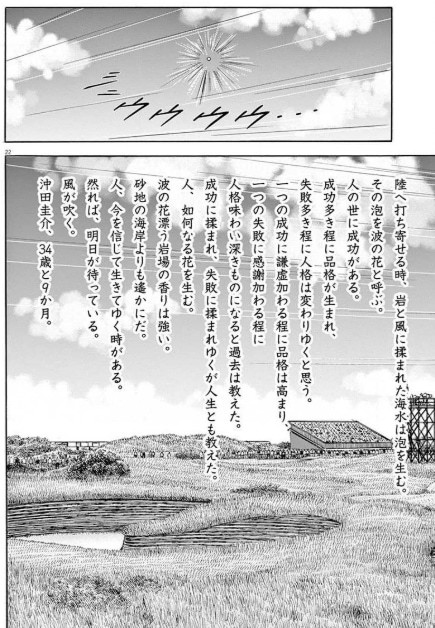 ゥゥゥゥ・・・
22
陸へ打ち寄せる時、岩と風に揉まれた海水は泡を生む。
その泡を波の花と呼ぶ。
人の世に成功がある。
成功多き程に品格が生まれ、
失敗多き程に人格は変わりゆくと思う。
一つの成功に謙虚加わる程に品格は高まり、
一つの失敗に感謝加わる程に
人格味わい深きものになると過去は教えた。
成功に揉まれ、失敗に揉まれゆくが人生とも教えた。
人、如何なる花を生む。
波の花漂う岩場の香りは強い。
砂地の海岸よりも遙かにだ。
人、今を信じて生きてゆく時がある。
然れば、明日が待っている。
風が吹く。
沖田圭介、34歳と9か月。